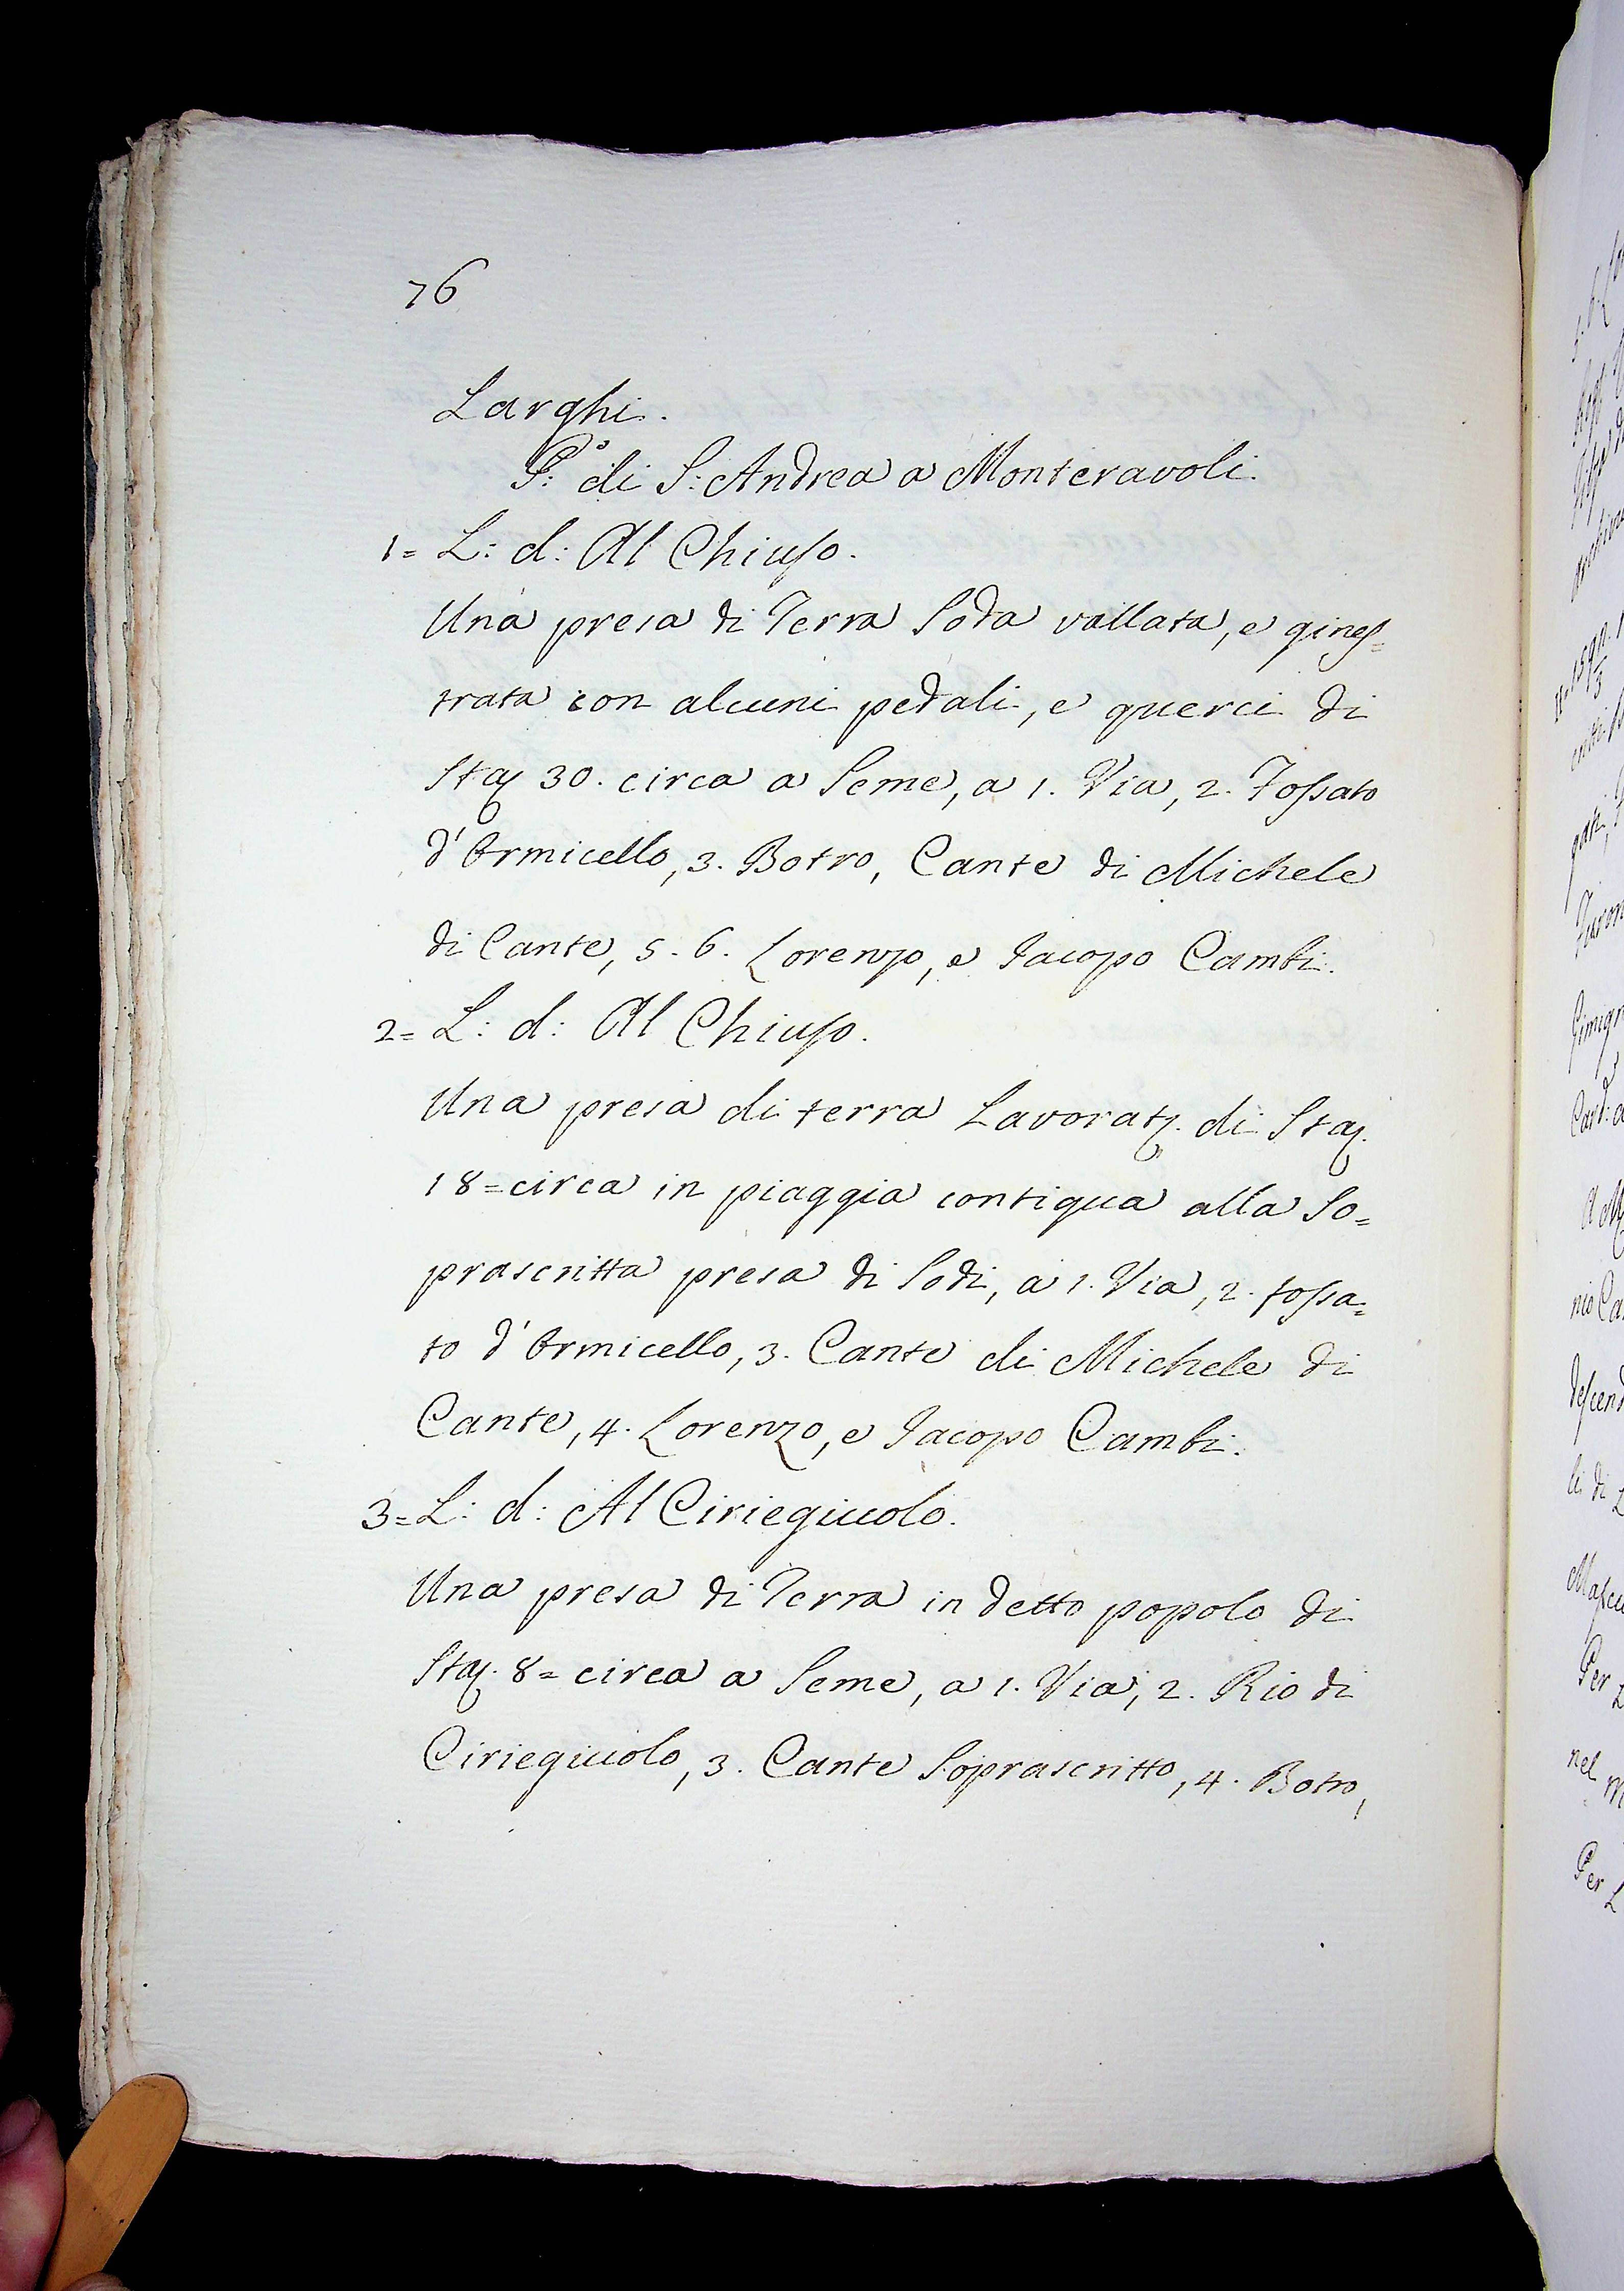 76
Larghi.
P:° di S: Andrea a Monteravoli.
1= L: d: Al Chiuso.
Una presa di Terra Soda vallata, e gines=
trata con alcuni pedali, e querci di
Staj 30. circa a Seme, a 1. Via, 2. Fossato
d'Ormicello, 3. Botro, Cante di Michele
di Cante, 5. 6. Lorenzo, e Jacopo Cambi.
2= L: d: Al Chiuso.
Una presa di terra Lavorat. di Staj.
18= circa in piaggia contigua alla So=
prascritta presa di Sodi, a 1. Via, 2. fossa=
to d'Ormicello, 3. Cante di Michele di
Cante, 4. Lorenzo, e Jacopo Cambi.
3= L: d: Al Ciriegiuolo.
Una presa di Terra in detto popolo di
Staj. 8= circa a Seme, a 1. Via, 2. Rio di
Ciriegiuolo, 3. Cante Soprascritto, 4. Botro,